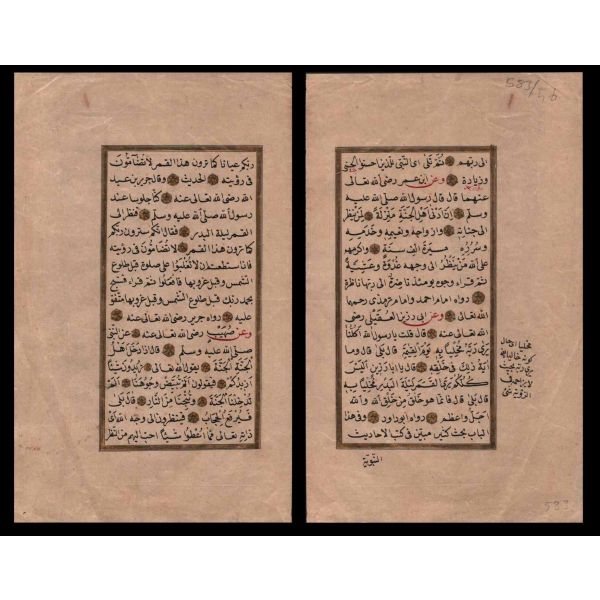 ربكم عيانا كما ترون هذا القمر لا تضامون
فى رؤيته الحديث وقال جرير بن عبد
الله رضى الله تعالى عنه كنا جلوسا عند
رسول الله صلى الله عليه وسلم فنظر الى
القمر ليلة البدر فقال انكم سترون ربكم
كما ترون هذا القمر لا تضامون فى رؤيته
فان استطعتم ان لا تغلبوا على صلوة قبل طلوع
الشمس وقبل غروبها فافعلوا ثم قرأ فسبح
بحمد ربك قبل طلوع الشمس وقبل غروبها متفق
عليه رواه جرير رضى الله تعالى عنه
وعن صهيب رضى الله تعالى عنه عن النبى
صلى الله عليه وسلم قال اذا دخل اهل
الجنة الجنة يقول الله تعالى تريدون شيئا
ازيدكم فيقولون الم تبيض وجوهنا الم
تدخلنا الجنة وتنجنا من النار قال
فيرفع الحجاب فينظرون الى وجه الله اى
ذاته تعالى فما اعطوا شيئا احب اليهم من النظر
583/56
الى ربهم ثم تلى اى النبى للذين احسنوا الحسنى
وزيادة وعن ابن عمر رضى الله تعالى
عنهما قال قال رسول الله صلى الله عليه
وسلم ان ادنى اهل الجنة منزلة لمن ينظر
الى جنانه وازواجه ونعيمه وخدمه
وسرره مسيرة الف سنة واكرمهم
على الله من ينظر الى وجهه غدوة وعشية
ثم قرأ وجوه يومئذ ناضرة الى ربها ناظرة
رواه امام احمد وامام ترمذى رحمهما
الله تعالى وعن ابى رزين العقيلى رضى
الله تعالى عنه قال قلت يا رسول الله اكلنا
يرى ربه مخليا به يوم القيمة قال بلى قال وما
آية ذلك فى خلقه قال يا ابا رزين اليس
كلكم يرى القمر ليلة البدر مخليا به
قال بلى قال فانما هو خلق من خلق الله والله
اجل واعظم رواه ابو داود وفى هذا
الباب بحث كثير مبين فى كتب الاحاديث
النبوية
583